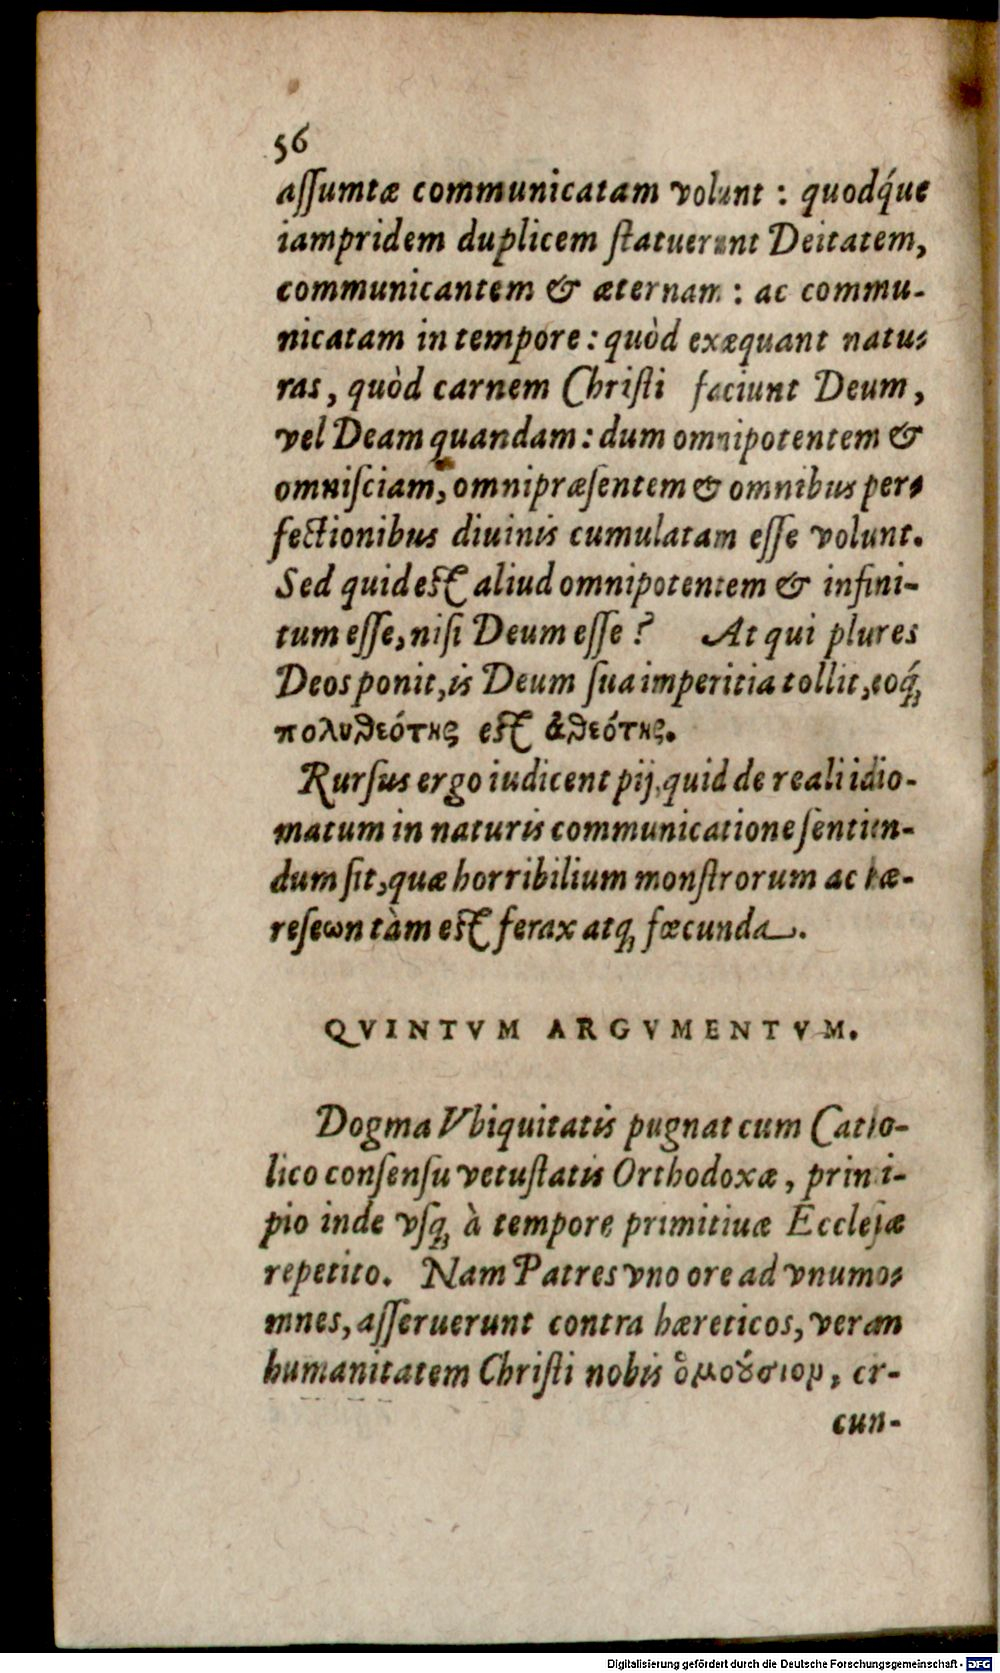 56
aſſumtæ communicatam volunt : quodq́ue
iampridem duplicem ſtatuerunt Deitatem,
communicantem & æternam : ac commu-
nicatam in tempore : quòd exæquant natu-
ras, quòd carnem Chriſti faciunt Deum,
vel Deam quandam : dum omnipotentem &
omniſciam, omnipræſentem & omnibus per-
fectionibus diuinis cumulatam eſſe volunt.
Sed quid eſt aliud omnipotentem & infini-
tum eſſe, niſi Deum eſſe ? At qui plures
Deos ponit, is Deum ſua imperitia tollit, eoq́;
πολυθεότης eſt ἀθεότης.
Rurſus ergo iudicent pij, quid de reali idio-
matum in naturis communicatione ſentien-
dum ſit, quæ horribilium monſtrorum ac hæ-
reſeων tàm eſt ferax atq; fœcunda.
QVINTVM ARGVMENTVM.
Dogma Vbiquitatis pugnat cum Catho-
lico conſenſu vetuſtatis Orthodoxæ, princi-
pio inde vſq; à tempore primitiuæ Eccleſiæ
repetito. Nam Patres vno ore ad vnum o-
mnes, aſſeruerunt contra hæreticos, veram
humanitatem Chriſti nobis ὁμούσιον, cr-
cun-
Digitalisierung gefördert durch die Deutsche Forschungsgemeinschaft - DFG